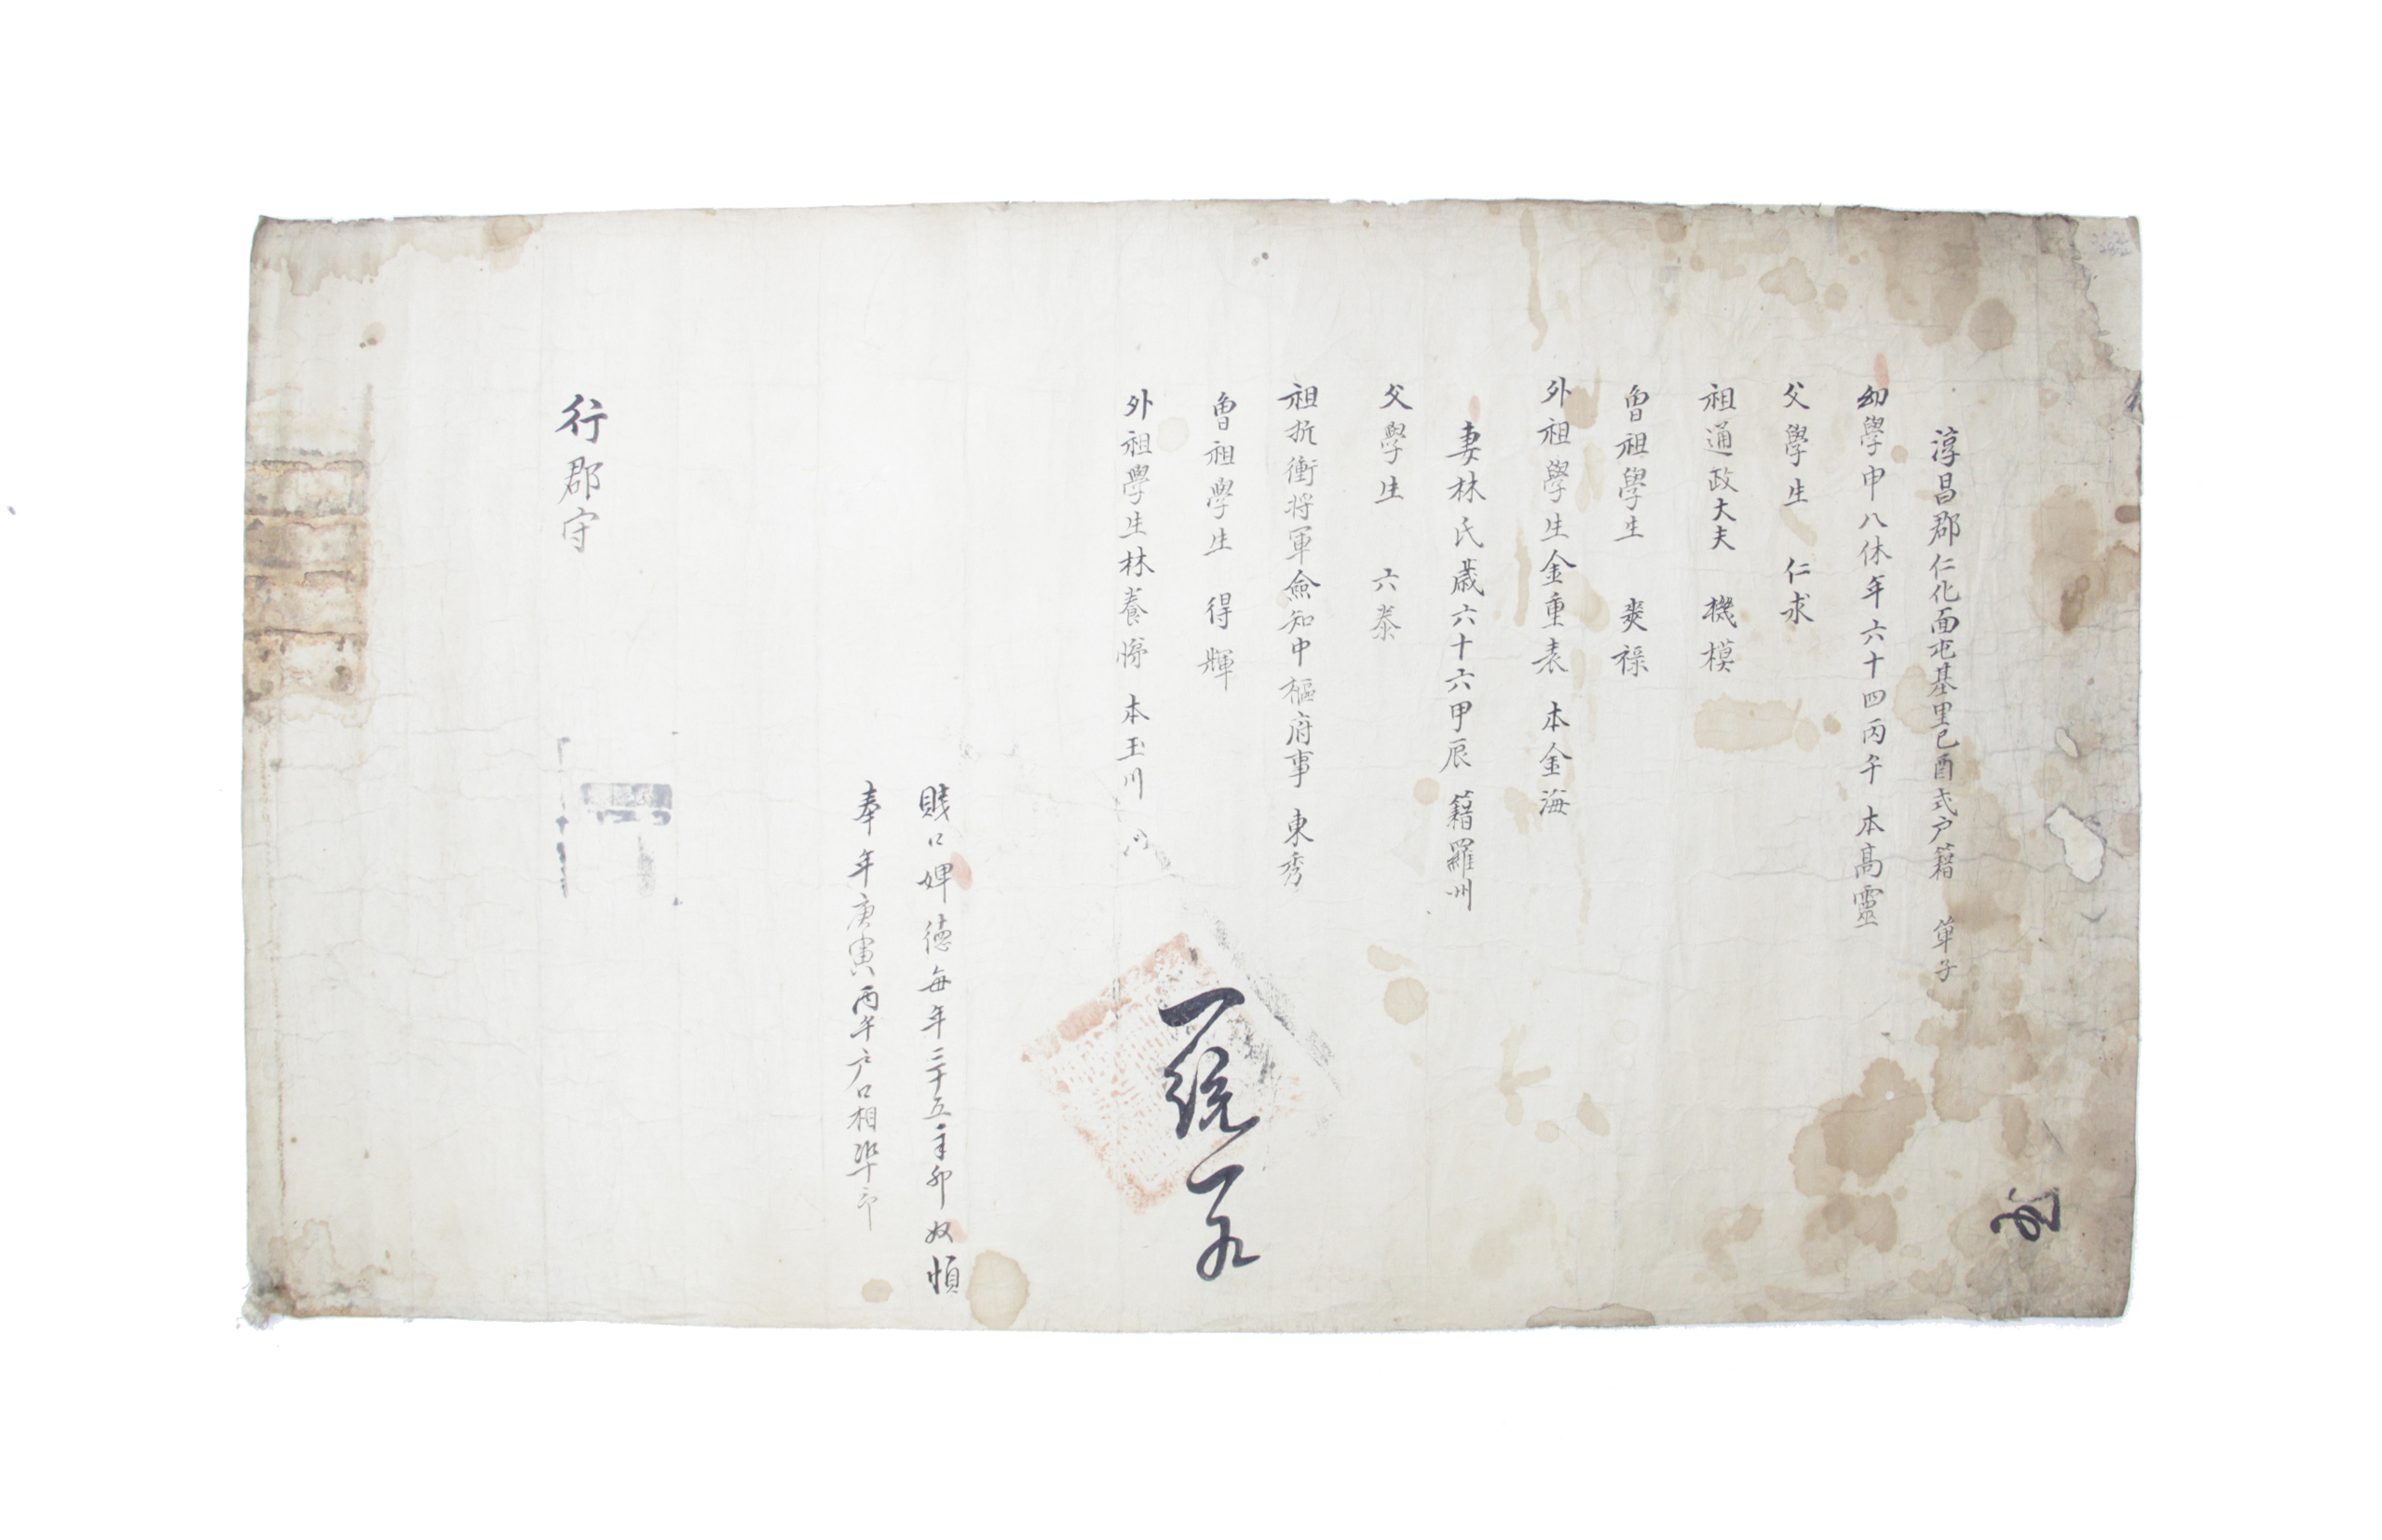 淳昌郡仁化面屯基里己酉式户籍 單子
幼學申八休年六十四丙午 本高靈
父學生 仁求
祖通政大夫 機模
曾祖學生 爽祿
外祖學生金重表 本金海
妻林氏歲六十六甲辰 籍羅州
父學生 六泰
祖折衝將軍僉知中樞府事 東秀
曾祖學生 得輝
外祖學生林養 本玉川
一統一
賤口婢德每年三十五辛卯 奴
奉 年庚寅 丙午户口相準印
行郡守